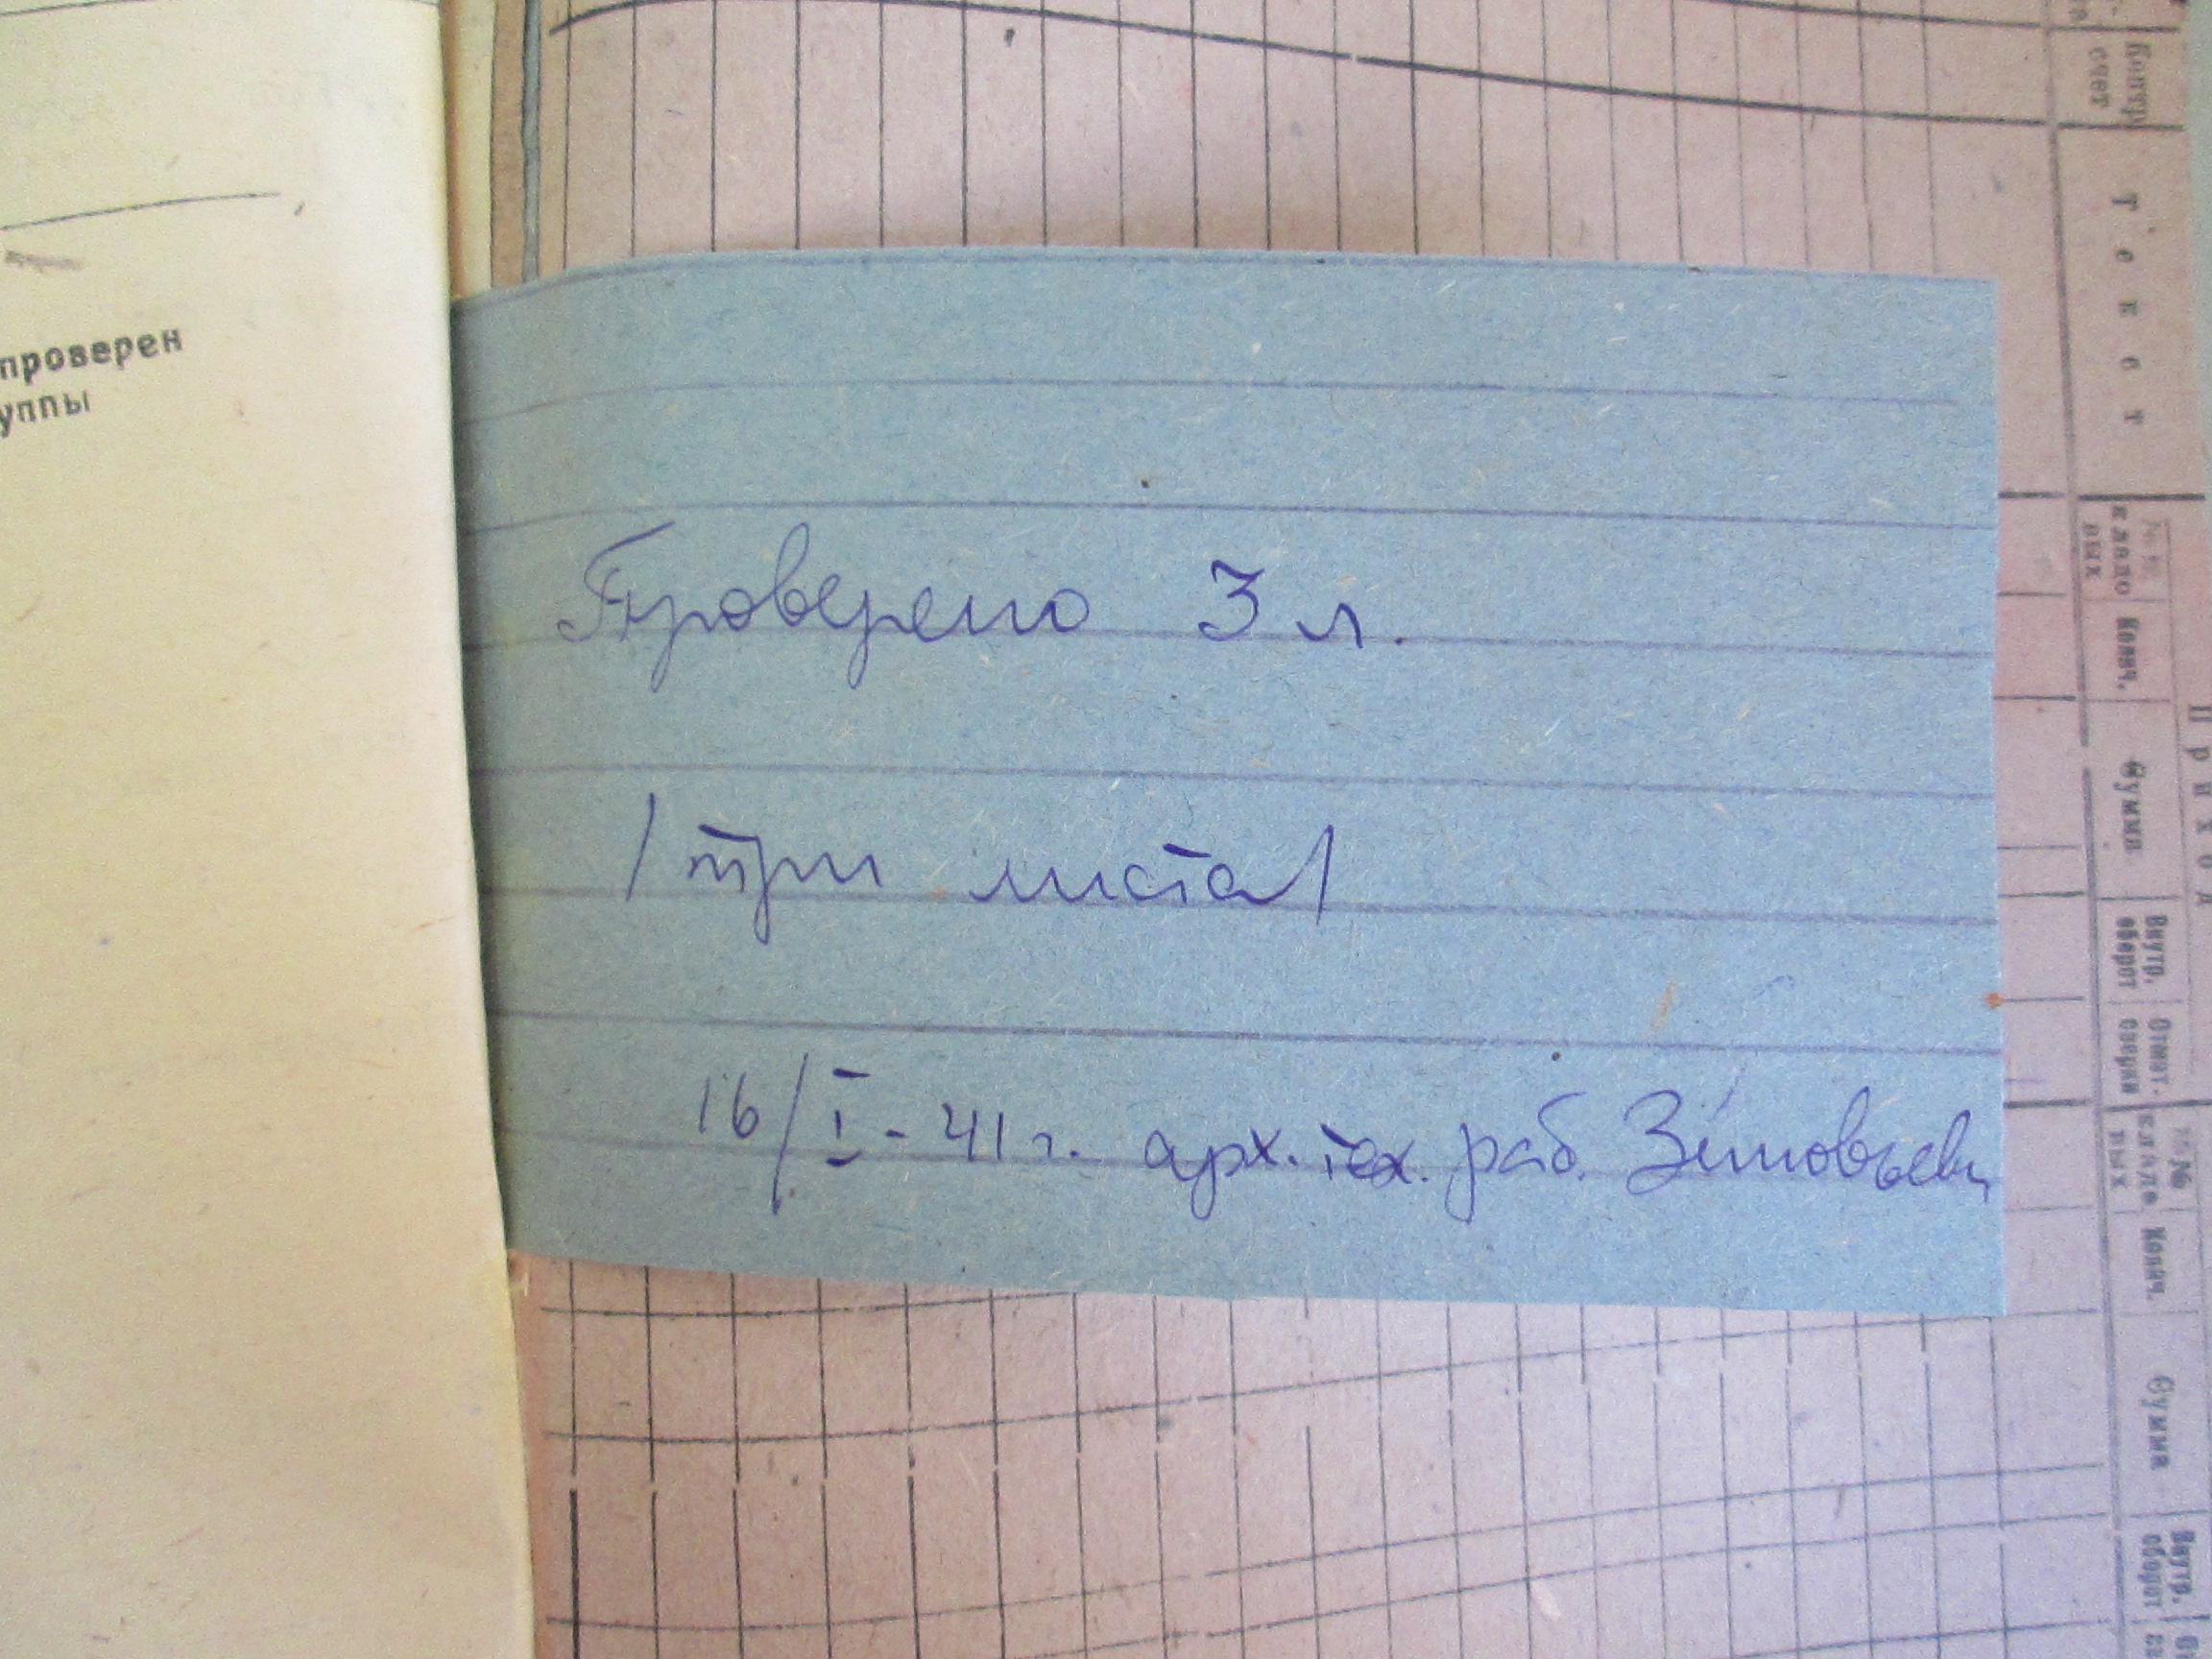 проверен
уппы
Проверено 3 л.
/три листа/
16/I - 41 г. арх. тех. раб. Зиновьев
Контр счет
Текст
кладо вых
Колич.
Сумма
Внутр. оборот
Отмет. сверки
Приход
№№ кладо вых
Колич.
Сумма
Внутр. оборот